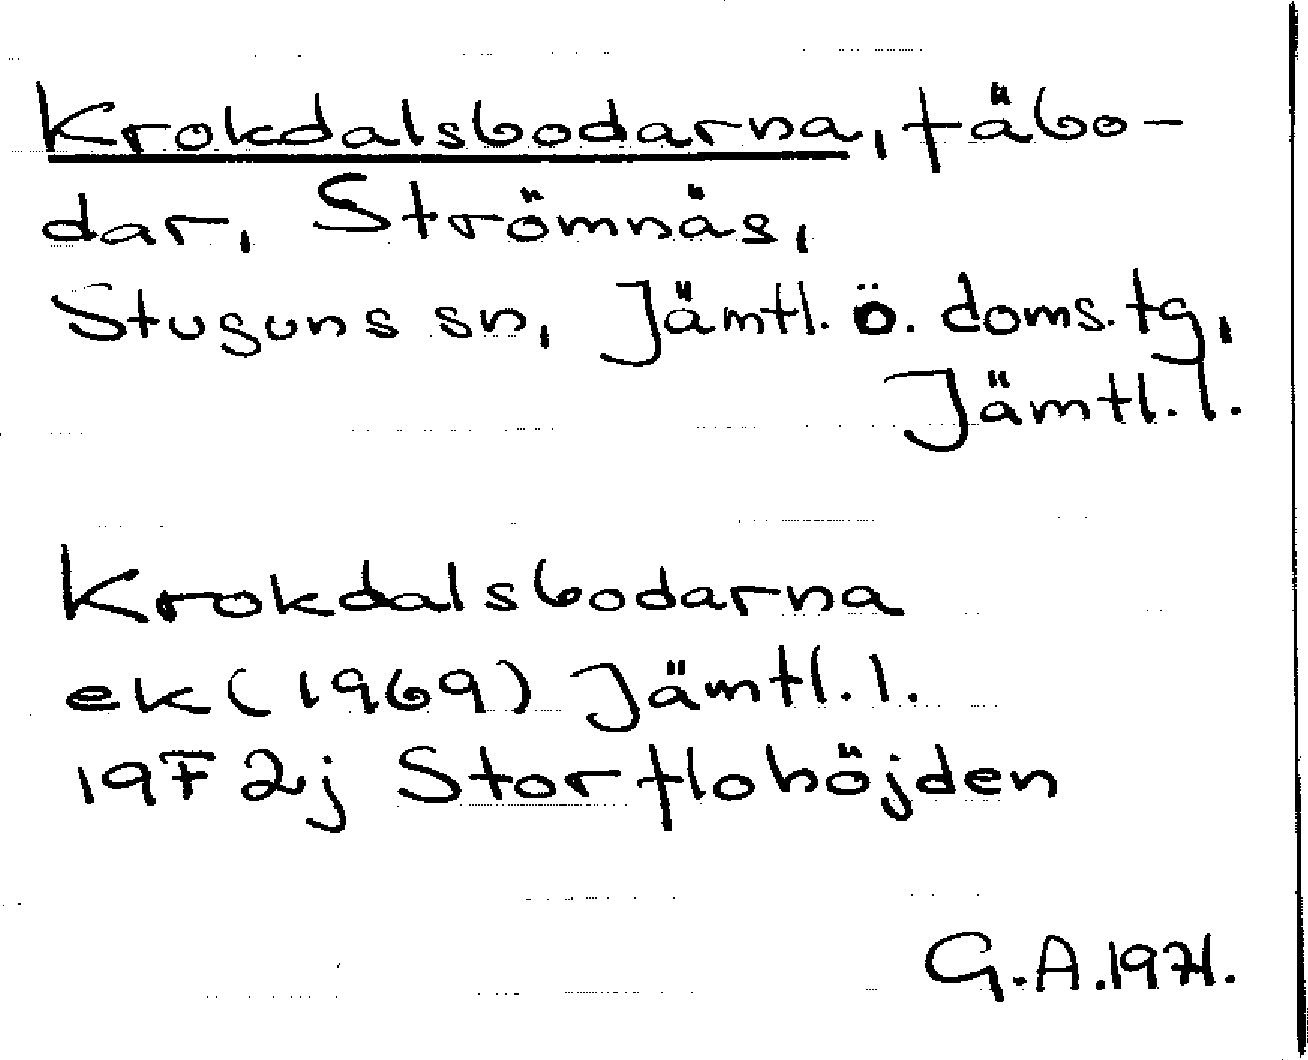 Krokdalsbodarna, fäbo-
dar, Strömnäs,
Stuguns sn, Jämtl. ö. doms. tg,
Jämtl. l.
Krokdalsbodarna
ek (1969) Jämtl. l.
19F 2j Storflohöjden
G. A. 1971.